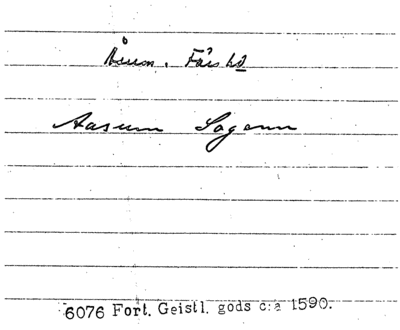 Åsum. Färs hd
Aasum Sogenn
6076 Fort. Geistl. gods c:a 1590.